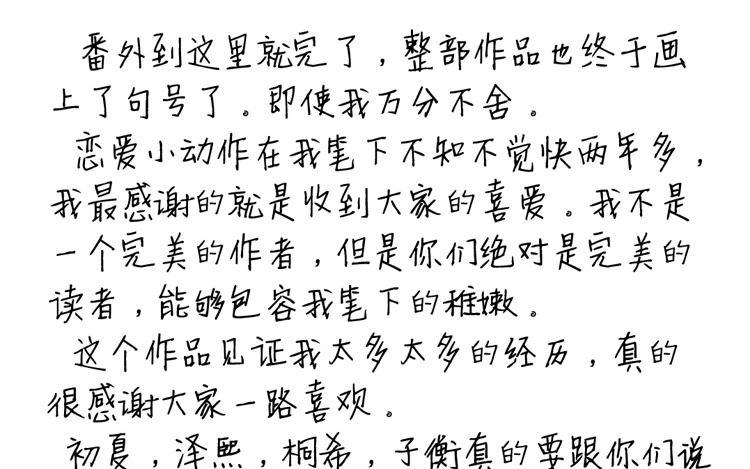 番外到这里就完了，整部作品也终于画
上了句号了。即使我万分不舍。
恋爱小动作在我笔下不知不觉快两年多，
我最感谢的就是收到大家的喜爱。我不是
一个完美的作者，但是你们绝对是完美的
读者，能够包容我笔下的稚嫩。
这个作品见证我太多太多的经历，真的
很感谢大家一路喜欢。
初夏，泽熙，桐希，子衡真的要跟你们说